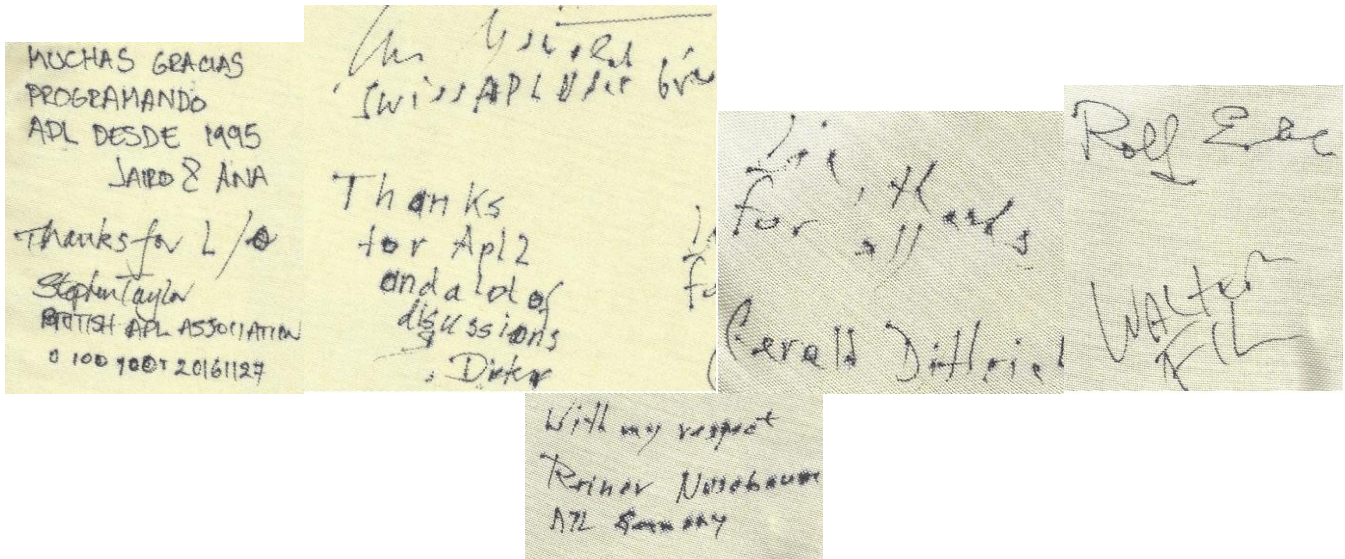 MUCHAS GRACIAS
PROGRAMANDO
APL DESDE 1995
JAIRO & ANA
Thanks for L/0
Stephen Taylor
BRITISH APL ASSOCIATION
0 100 100 T 20161127
Swiss APL User Gro
Thanks
for Apl2
and a lot of
disussions
Dirk
thanks
for all
Gerald Dittrich
Rolf
WALTER
FIL
With my respect
Reiner Nussbaum
APL Germany